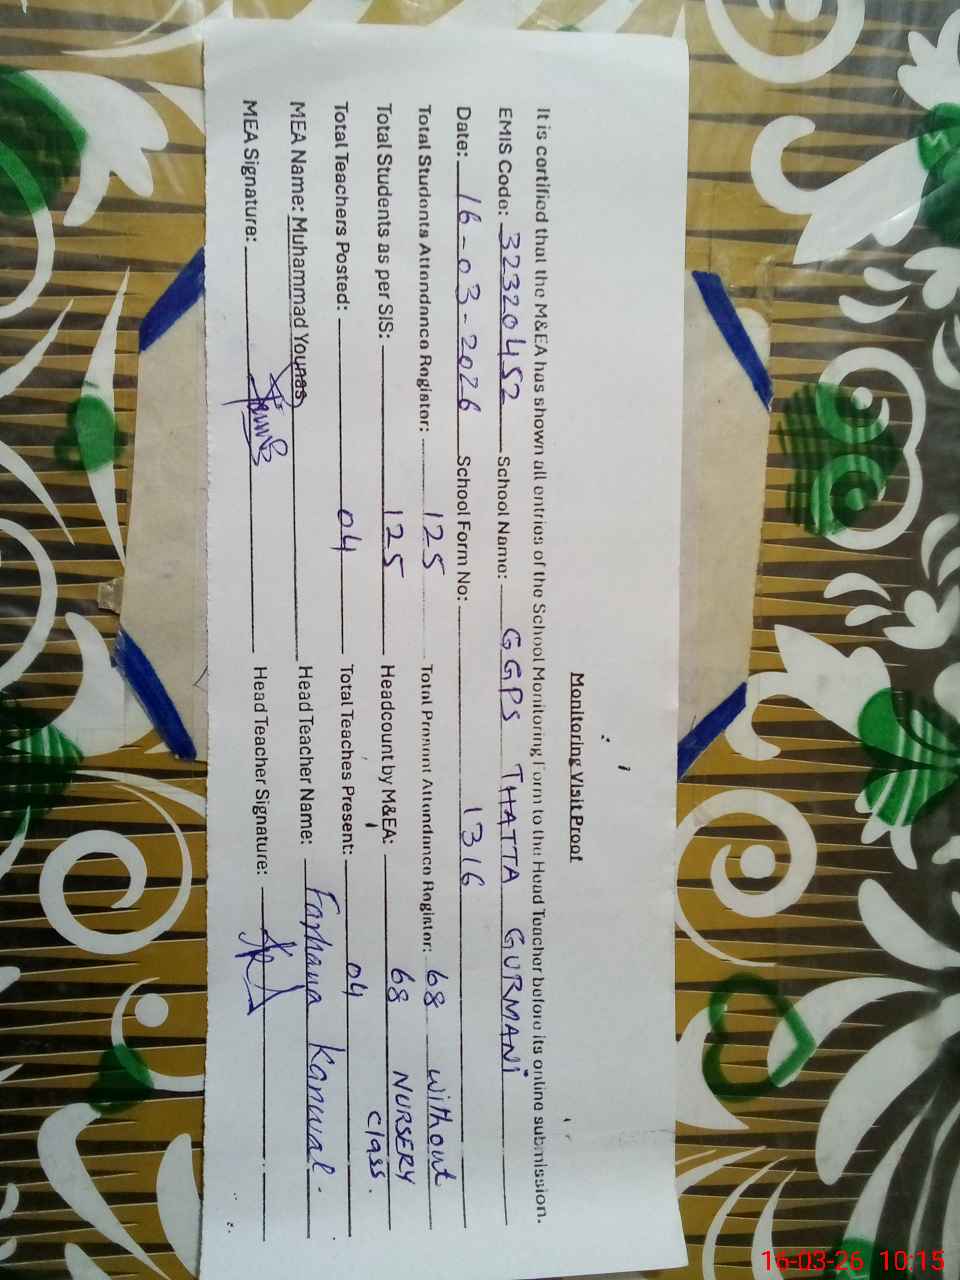 Monitoring Visit Proof
It is certified that the M&EA has shown all entries of the School Monitoring Form to the Head Teacher before its online submission.
EMIS Code: 32320452 School Name: GGPS THATTA GURMANI
Date: 16-03-2026 School Form No: 1316
Total Students Attendance Register: 125 Total Present Attendance Register: 68 without
Total Students as per SIS: 125 Headcount by M&EA: 68 NURSERY class.
Total Teachers Posted: 04 Total Teaches Present: 04
MEA Name: Muhammad Younas Head Teacher Name: Farhana Kanwal.
MEA Signature: Head Teacher Signature:
16-03-26 10:15